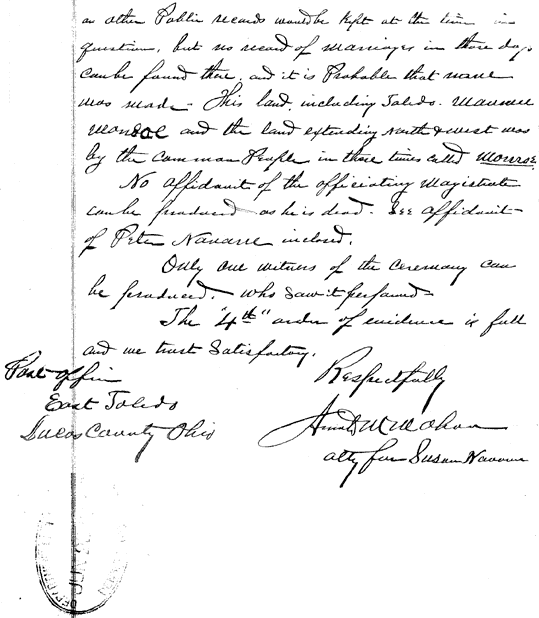 or other Public records would be kept at the time in
question, but no record of marriages in those days
can be found there, and it is Probable that none
was made - This land, including Toledo. Maumee
Monroe and the land extending North & west was
by the Common People in those times called Monroe.
No affidavit of the officiating Magistrate
can be produced as he is dead. See affidavit
of Peter Navarre inclosed.
Only one witness of the ceremony can
be produced. - who saw it performed -
The "4th" order of evidence is full
and we trust Satisfactory.
Respectfully
Post office
East Toledo
Lucas County Ohio
McMahon
atty for Susan Navarre